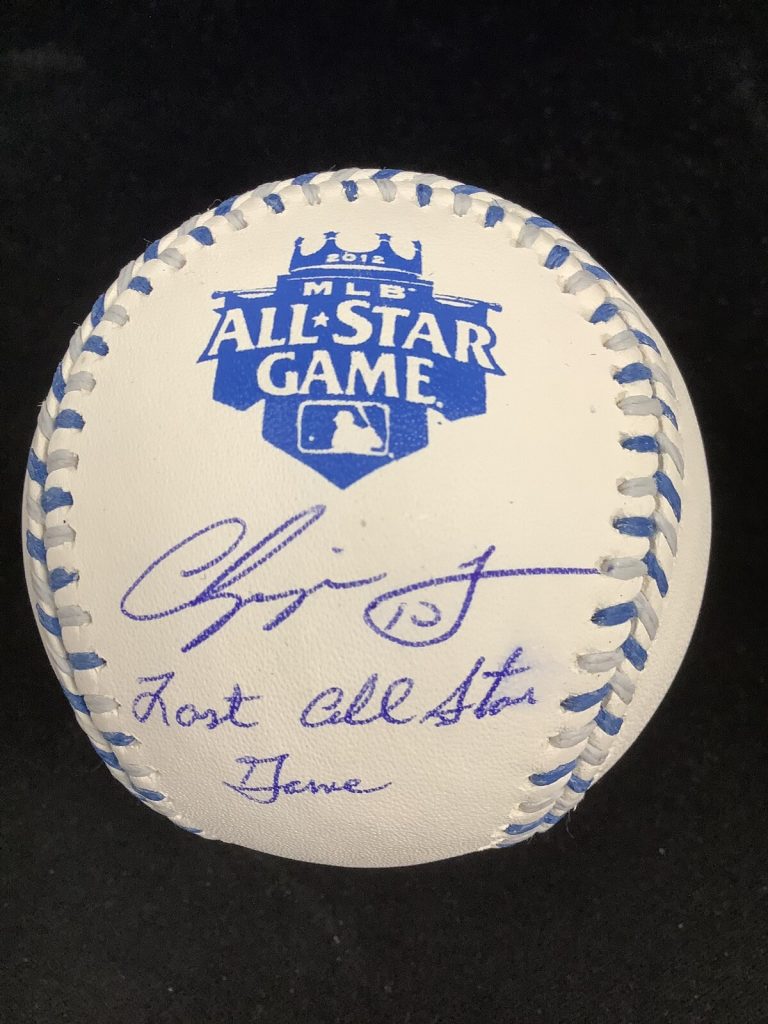 2012
MLB
ALL★STAR
GAME
Chipper J 10
Last All Star
Game